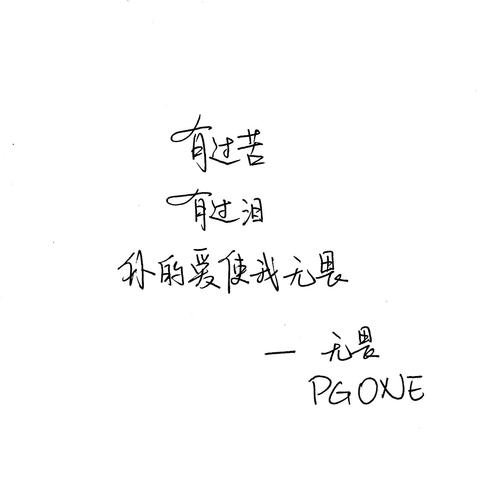 有过苦
有过泪
你的爱使我无畏
— 无畏
PGONE